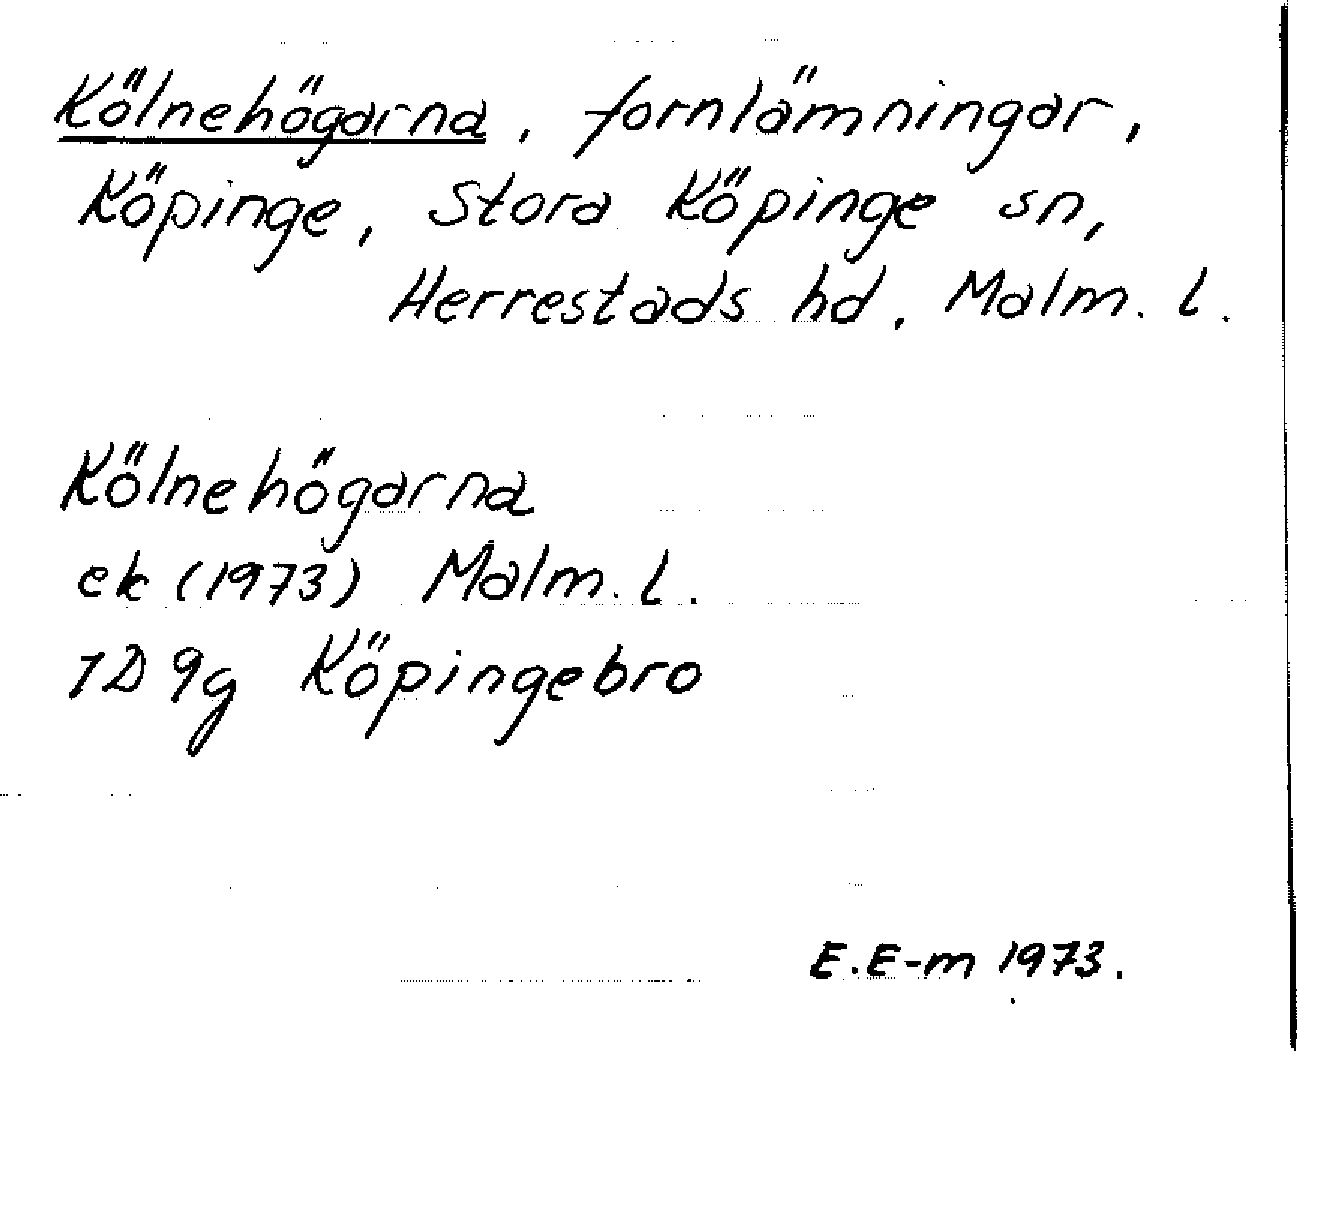 Kölnehögarna, fornlämningar,
Köpinge, Stora Köpinge sn,
Herrestads hd, Malm. l.
Kölnehögarna
ek (1973) Malm. l.
1D 9g Köpingebro
E.E-m 1973.